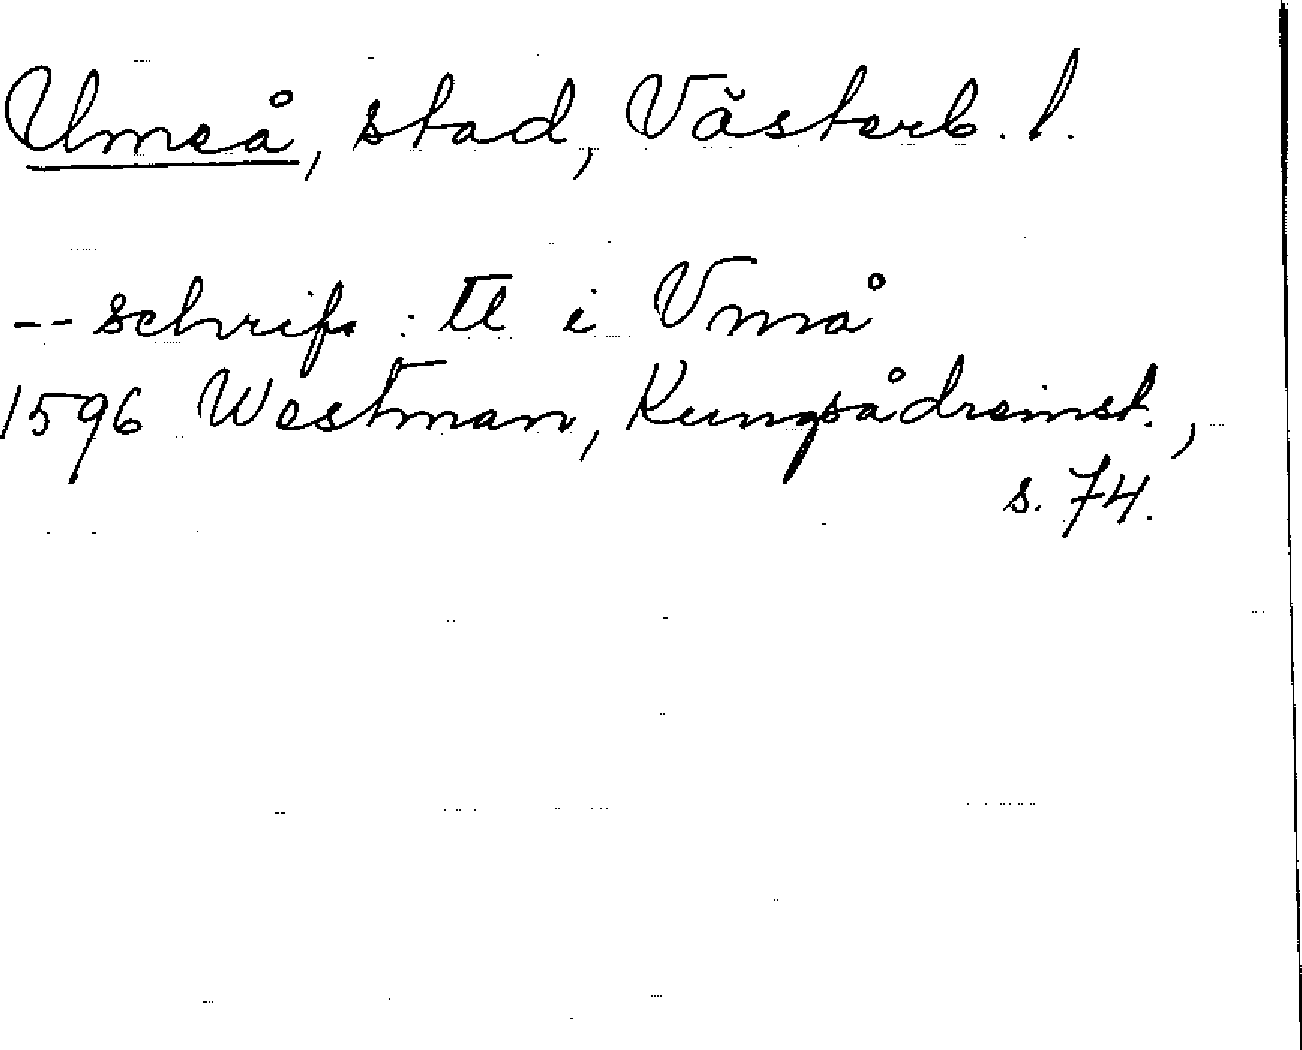 Umeå, stad, Västerb. l.
-- schrifr : tt i Vmå
1596 Westman, Kungsådreinst.,
s. 74.